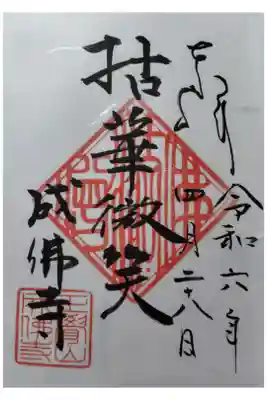 奉拝
令和六年
四月二十八日
拈華微笑
成佛寺